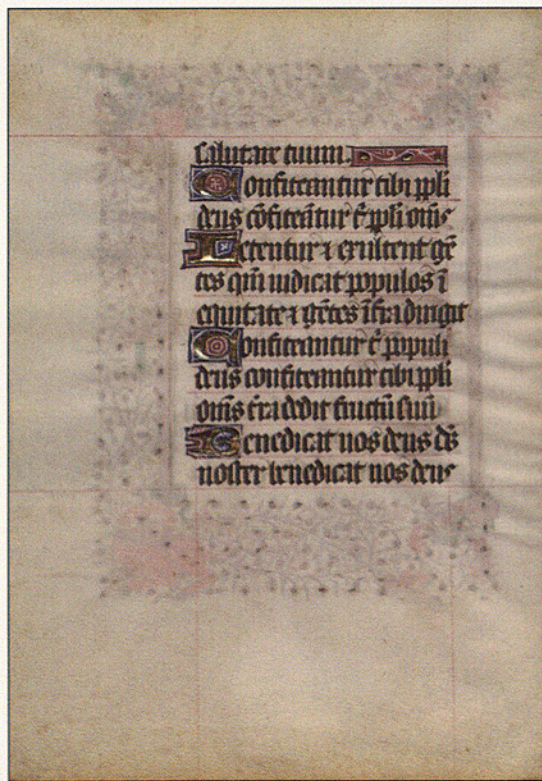 salutare tuum.
Confiteantur tibi ppli
deus cōfiteātur t̄ ppli om̄s
Letentur ⁊ exultent gē
tes qm̄ iudicat populos ī
equitate ⁊ gētes ī t̄ra dirigit
Confiteantur t̄ populi
deus confiteantur tibi ppli
om̄s t̄ra dedit fructū suū
Benedicat nos deus ds̄
noster benedicat nos deus